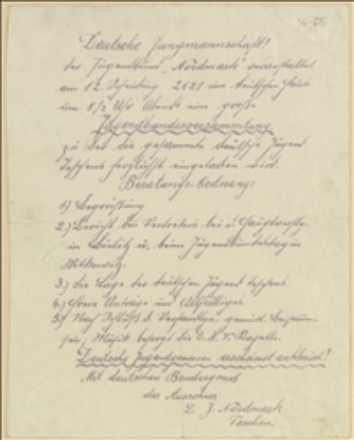 Deutsche Jungmannschaft!
Der Jugendbund „Nordmark" veranstaltet
am 12. Scheiding 2021 im deutschen Hause
um 8½ Uhr Abends eine große
Jugendbundesversammlung
zu der die gesammte deutsche Jugend
Teschens herzlichst eingeladen wird.
Beratungs-Ordnung:
1) Begrüßung
2.) Bericht des Vertreters bei d.
in Bielitz u. beim Jugendbundestag in
3.) Die Lage der deutschen Jugend Teschens.
4.) Freie Anträge und Allfälliges.
5) Nach Schluß d. Verhandlgn. gemütl. Beisam-
sein; Musik besorgt die D. K. V. Kapelle.
Deutsche Jugendgenossen erscheint zahlreich!
Mit deutschem Brudergruß
der Ausschuss
D. J. Nordmark
Teschen.